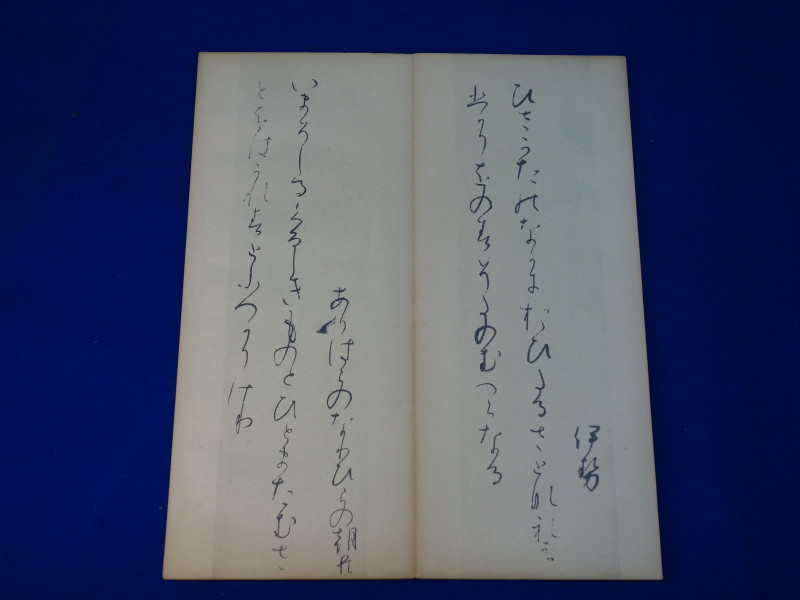 伊勢
ひさかたのなかにおひたるさとなれは
ひかりをのみそたのむへらなる
ありはらのなりひらの朝臣
いまそしるくるしきものとひとまたむさ
とをはかれすとふへかりけり